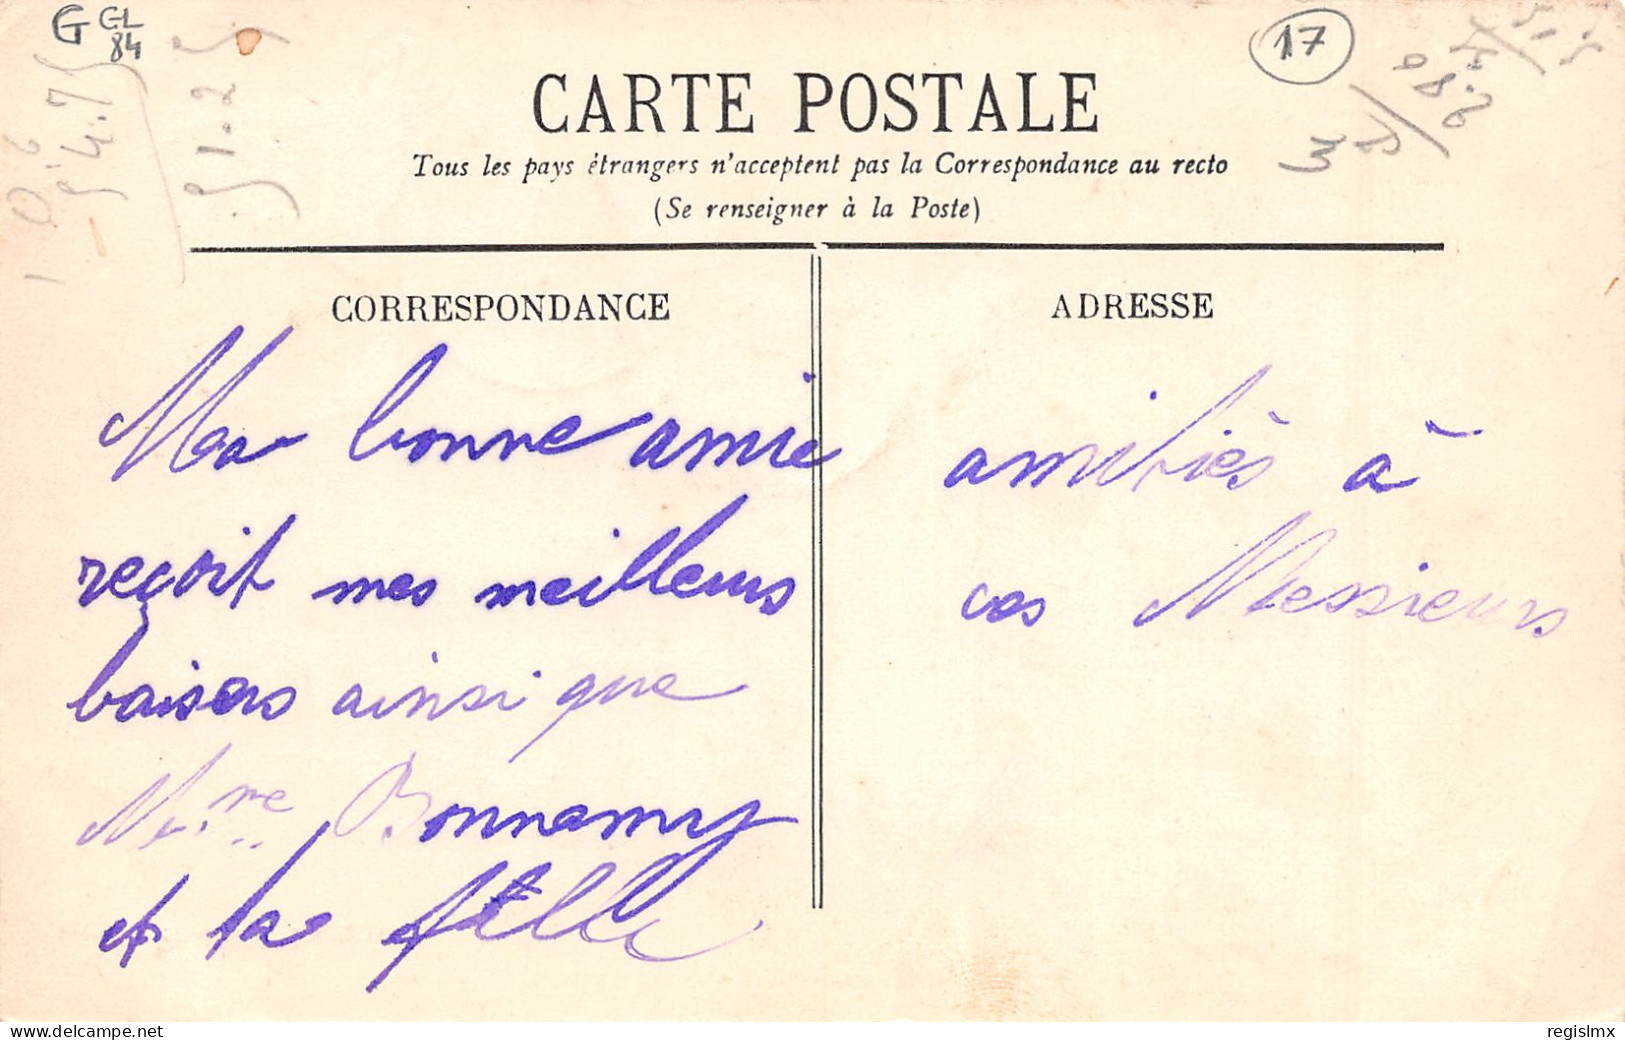 G GL
84
17
CARTE POSTALE
Tous les pays étrangers n'acceptent pas la Correspondance au recto
(Se renseigner à la Poste)
CORRESPONDANCE
Ma bonne amie
reçoit mes meilleurs
baisers ainsi que
Mme Bonnamy
et ta fille
ADRESSE
amitiés à
ces Messieurs
www.delcampe.net
regislmx